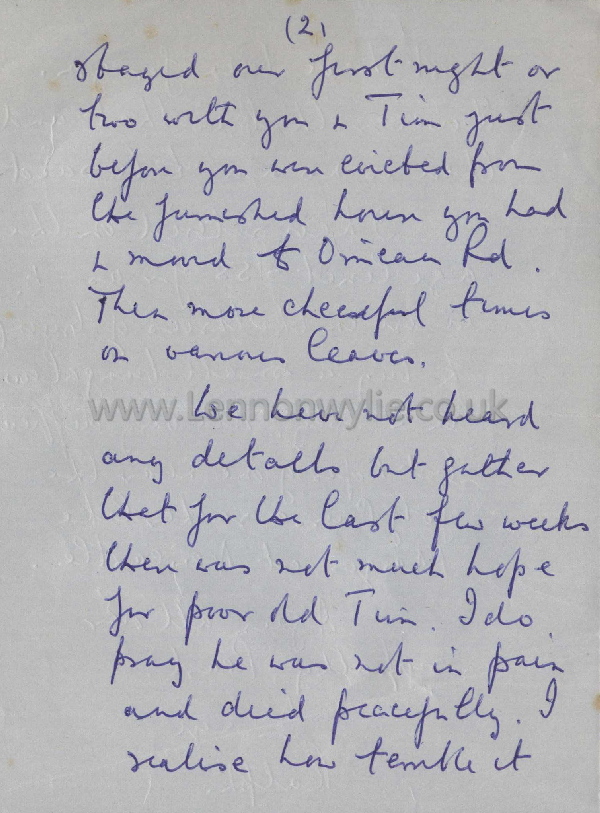 (2)
stayed our first night or
two with you & Tim just
before you were evicted from
the furnished house you had
& moved to Omeau Rd.
Then more cheerful times
on various leaves.
www.Lennonwylie.co.uk
We have not heard
any details but gather
that for the last few weeks
there was not much hope
for poor old Tim. I do
pray he was not in pain
and died peacefully. I
realise how terrible it